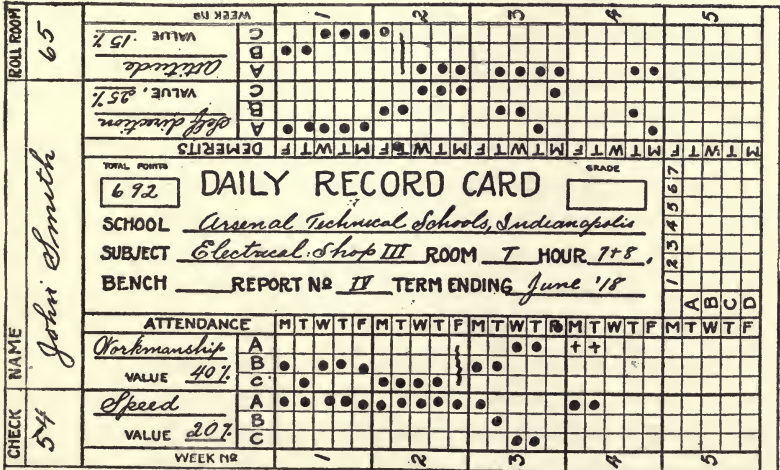 ROLL ROOM 65
NAME John Smith
CHECK 54
WEEK Nº 1 2 3 4 5
Attitude
VALUE 15%
A
B
C
Self direction
VALUE, 25%
A
B
C
DEMERITS M T W T F M T W T F M T W T F M T W T F M T W T F
TOTAL POINTS
692
DAILY RECORD CARD
GRADE
SCHOOL Arsenal Technical Schools, Indianapolis
SUBJECT Electrical Shop III ROOM T HOUR 7+8.
BENCH REPORT Nº IV TERM ENDING June '18
1 2 3 4 5 6 7
A B C D
ATTENDANCE M T W T F M T W T F M T W T F M T W T F M T W T F
Workmanship
VALUE 40%
A
B
C
+ +
Speed
VALUE 20%
A
B
C
WEEK Nº 1 2 3 4 5